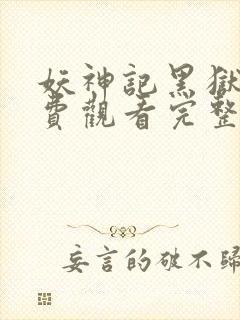 妖神記黑獄
費觀看完整
妄言的破不歸